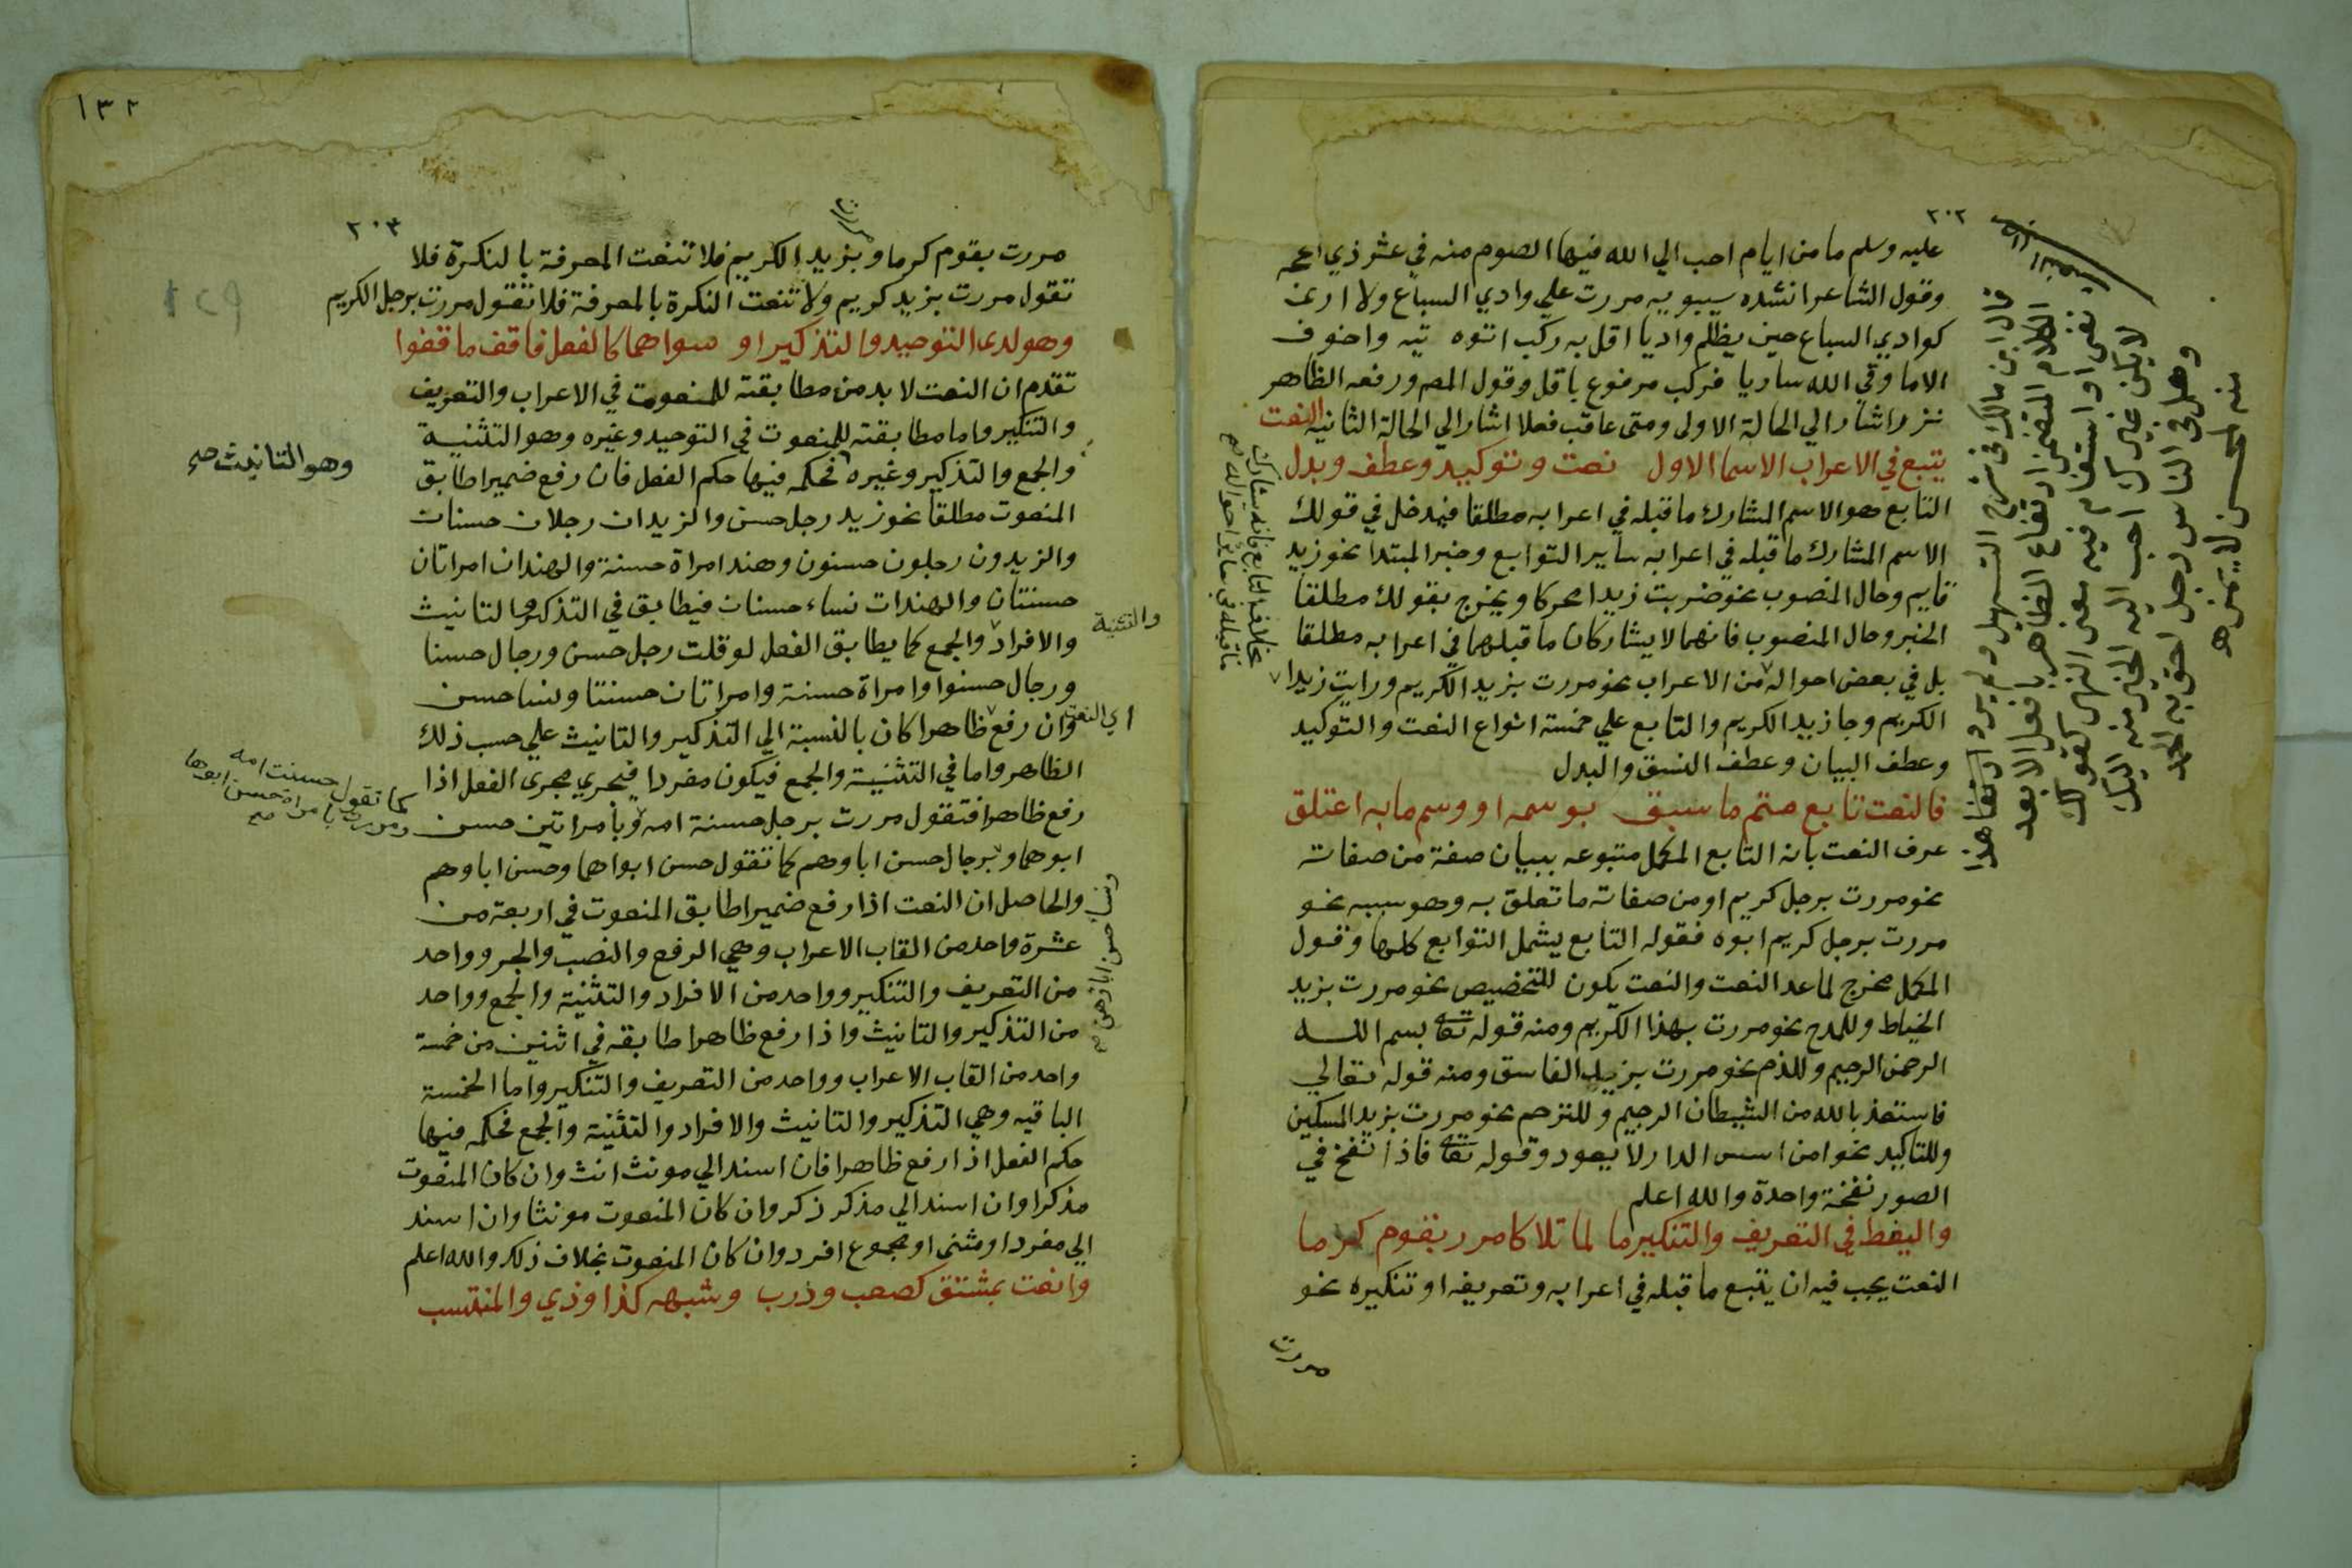 ٢٠٢
عليه وسلم ما من ايام احب الي الله فيها الصوم منه في عشر ذي الحجه
وقول الشاعر انشده سيبويه مررت علي وادي السباع ولا اري
كوادي السباع حين يظلم واديا اقل به ركب اتوه تيه واخوف
الا ما وقي الله ساريا فركب مرفوع باقل وقول المص ورفعه الظاهر
نزر اشار الي الحالة الاولى ومتى عاقب فعلا اشار الي الحالة الثانيه النعت
يتبع في الاعراب الاسما الاول نعت وتوكيد وعطف وبدل
التابع هو الاسم المشارك ما قبله في اعرابه مطلقا فيدخل في قولك
الاسم المشارك ما قبله في اعرابه ساير التوابع وخبر المبتدا نحو زيد
قايم وحال المنصوب نحو ضربت زيدا مجردا ويخرج بقولك مطلقا
الخبر وحال المنصوب فانهما لا يشاركان ما قبلهما في اعرابه مطلقا
بل في بعض احواله من الاعراب نحو مررت بزيد الكريم ورايت زيدا
الكريم وجا زيد الكريم والتابع علي خمسة انواع النعت والتوكيد
وعطف البيان وعطف النسق والبدل
فالنعت تابع متم ما سبق بوسمه او وسم ما به اعتلق
عرف النعت بانه التابع المكمل متبوعه ببيان صفة من صفاته
نحو مررت برجل كريم او من صفات ما تعلق به وهو سببه نحو
مررت برجل كريم ابوه فقوله التابع يشمل التوابع كلها وقول
المكمل مخرج لما عدا النعت والنعت يكون للتخصيص نحو مررت بزيد
الخياط وللمدح نحو مررت بهذا الكريم ومنه قوله تعا بسم الله
الرحمن الرحيم وللذم نحو مررت بزيد الفاسق ومنه قوله تعالي
فاستعذ بالله من الشيطان الرجيم وللترحم نحو مررت بزيد المسكين
وللتاكيد نحو امس الدار لا يعود وقوله تعا فاذا نفخ في
الصور نفخة واحدة والله اعلم
واليعط في التعريف والتنكير ما لما تلا كامرر بقوم كرما
النعت يجب فيه ان يتبع ما قبله في اعرابه وتعريفه او تنكيره نحو
مررت
بخلاف التابع فانه يشارك
ما قبله في ساير احواله صح
قال ابن مالك في شرح التسهيل ولم يرد ارتفاع هذا
الكلام المتضمن ارتفاع الظاهر بافعل الا بعد
نفي او استفهام فيه معنى النهي كقولك
لا يكن غيرك احب اليه الخير منه اليك
وهل في الناس رجل احق به الحمد
منه بمحسن لا يمن ه
١٣٢
٢٠٣
مررت بقوم كرما وبزيد الكريم فلا تنعت المعرفة بالنكرة فلا
تقول مررت بزيد كريم ولا تنعت النكرة بالمعرفة فلا تقول مررت برجل الكريم
وهو لدى التوحيد والتذكير او سواهما كالفعل فاقف ما قفوا
تقدم ان النعت لا بد من مطابقته للمنعوت في الاعراب والتعريف
والتنكير واما مطابقته للمنعوت في التوحيد وغيره وهو التثنية
والجمع والتذكير وغيره فحكمه فيها حكم الفعل فان رفع ضميرا طابق
وهو التانيث صح
المنعوت مطلقا نحو زيد رجل حسن والزيدان رجلان حسنان
والزيدون رجلون حسنون وهند امراة حسنة والهندان امراتان
حسنتان والهندات نساء حسنات فيطابق في التذكير والتانيث
والافراد والجمع كما يطابق الفعل لو قلت رجل حسن ورجال حسنا
والتثنية
ورجال حسنوا وامراة حسنة وامراتان حسنتا ونسا حسن
وان رفع ظاهرا كان بالنسبة الي التذكير والتانيث علي حسب ذلك
اي النعت
الظاهر واما في التثنية والجمع فيكون مفردا فيجري مجرى الفعل اذا
رفع ظاهرا فتقول مررت برجل حسنة امه وبامراتين حسن
كما تقول حسنت امه
ومررت بامراة حسن ابوها
صح
ابوهما وبرجال حسن اباوهم كما تقول حسن ابواهما وحسن اباوهم
والحاصل ان النعت اذا رفع ضميرا طابق المنعوت في اربعة من
عشرة واحد من القاب الاعراب وهي الرفع والنصب والجر وواحد
من التعريف والتنكير وواحد من الافراد والتثنية والجمع وواحد
من التذكير والتانيث واذا رفع ظاهرا طابقه في اثنين من خمسة
واحد من القاب الاعراب وواحد من التعريف والتنكير واما الخمسة
الباقيه وهي التذكير والتانيث والافراد والتثنية والجمع فحكمه فيها
حكم الفعل اذا رفع ظاهرا فان اسند الي مونث انث وان كان المنعوت
مذكرا وان اسند الي مذكر ذكر وان كان المنعوت مونثا وان اسند
الي مفرد او مثنى او مجموع افرد وان كان المنعوت بخلاف ذلك والله اعلم
وانعت بمشتق كصعب وذرب وشبهه كذا وذي والمنتسب